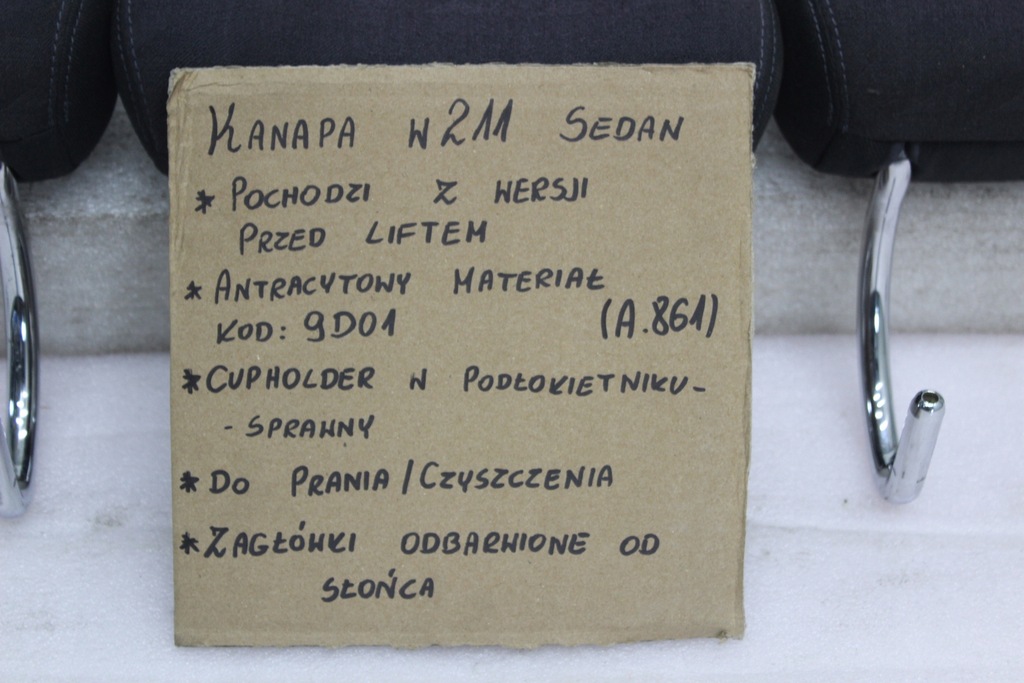 KANAPA W211 SEDAN
* POCHODZI Z WERSJI
PRZED LIFTEM
* ANTRACYTOWY MATERIAŁ
KOD: 9D01 (A.861)
* CUPHOLDER W PODŁOKIETNIKU -
- SPRAWNY
* DO PRANIA / CZYSZCZENIA
* ZAGŁÓWKI ODBARWIONE OD
SŁOŃCA